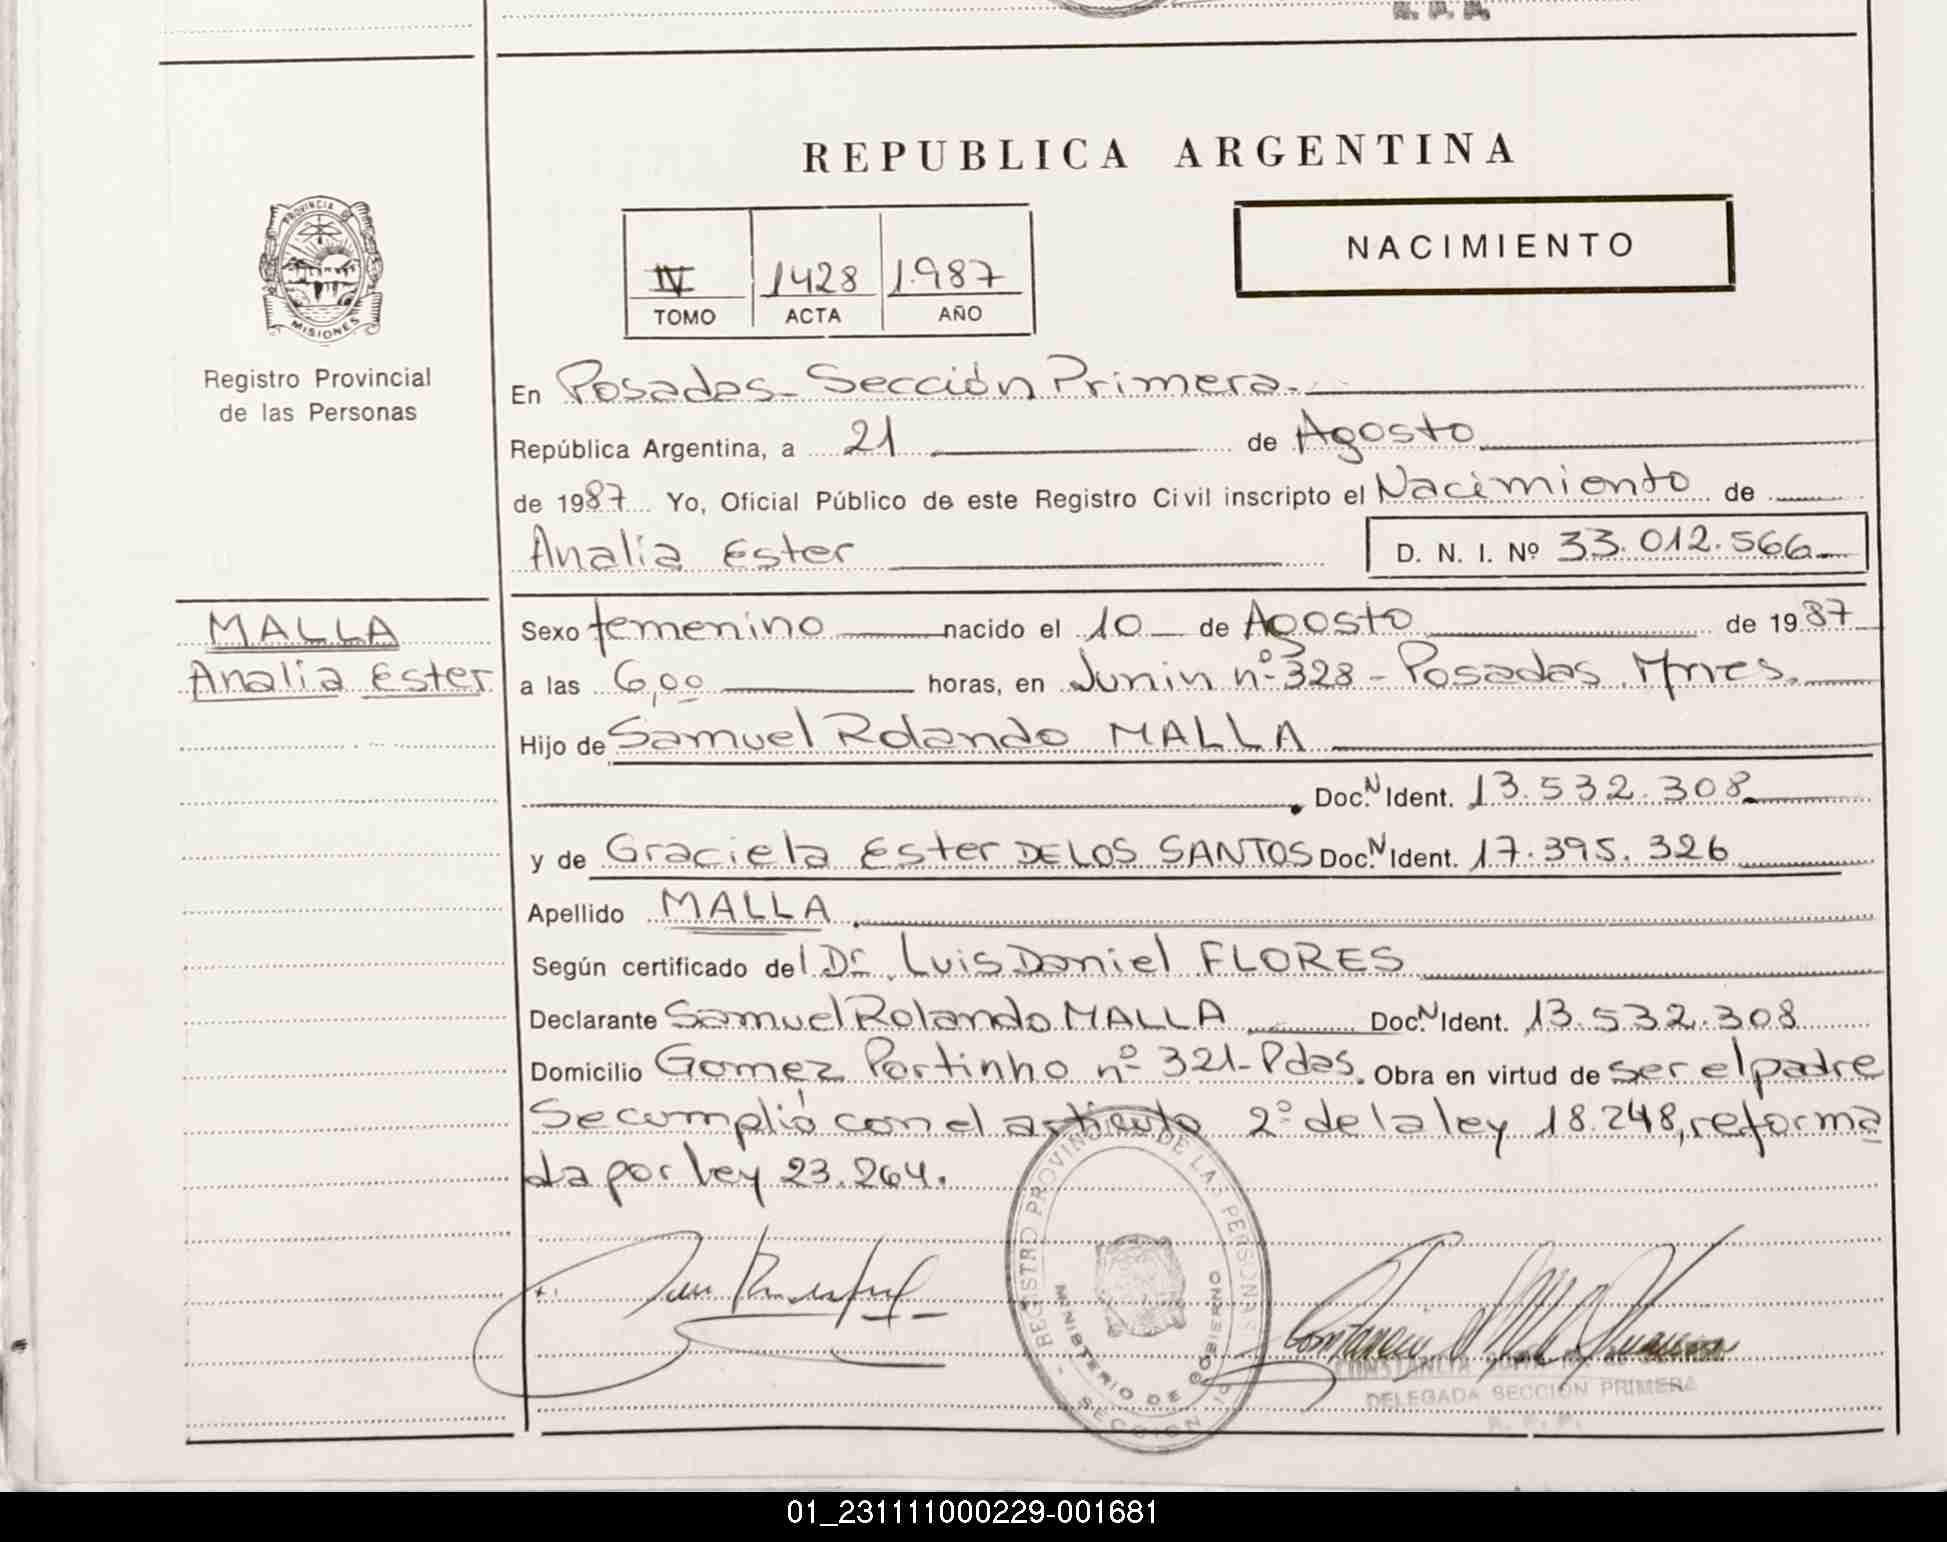 R. P. P.
REPUBLICA ARGENTINA
PROVINCIA DE
MISIONES
Registro Provincial
de las Personas
IV 1428 1.987
TOMO ACTA AÑO
NACIMIENTO
En Posadas - Sección Primera.
República Argentina, a 21 de Agosto
de 1987 Yo, Oficial Público de este Registro Civil inscripto el Nacimiento de
Analia Ester D. N. I. Nº 33.012.566
MALLA
Analia Ester
Sexo femenino nacido el 10 de Agosto de 1987
a las 6,00 horas, en Junin nº 328 - Posadas Mnes.
Hijo de Samuel Rolando MALLA
Doc.N Ident. 13.532.308
y de Graciela Ester DE LOS SANTOS Doc.N Ident. 17.395.326
Apellido MALLA
Según certificado del Dr. Luis Daniel FLORES
Declarante Samuel Rolando MALLA Doc.N Ident. 13.532.308
Domicilio Gomez Portinho nº 321 - Pdas. Obra en virtud de ser el padre
Se cumplió con el artículo 2º de la ley 18.248, reforma
da por ley 23.264.
REGISTRO PROVINCIAL DE LAS PERSONAS
MINISTERIO DE GOBIERNO
SECCION 1ª
CONSTANCIA
DELEGADA SECCION PRIMERA
R. P. P.
01_231111000229-001681